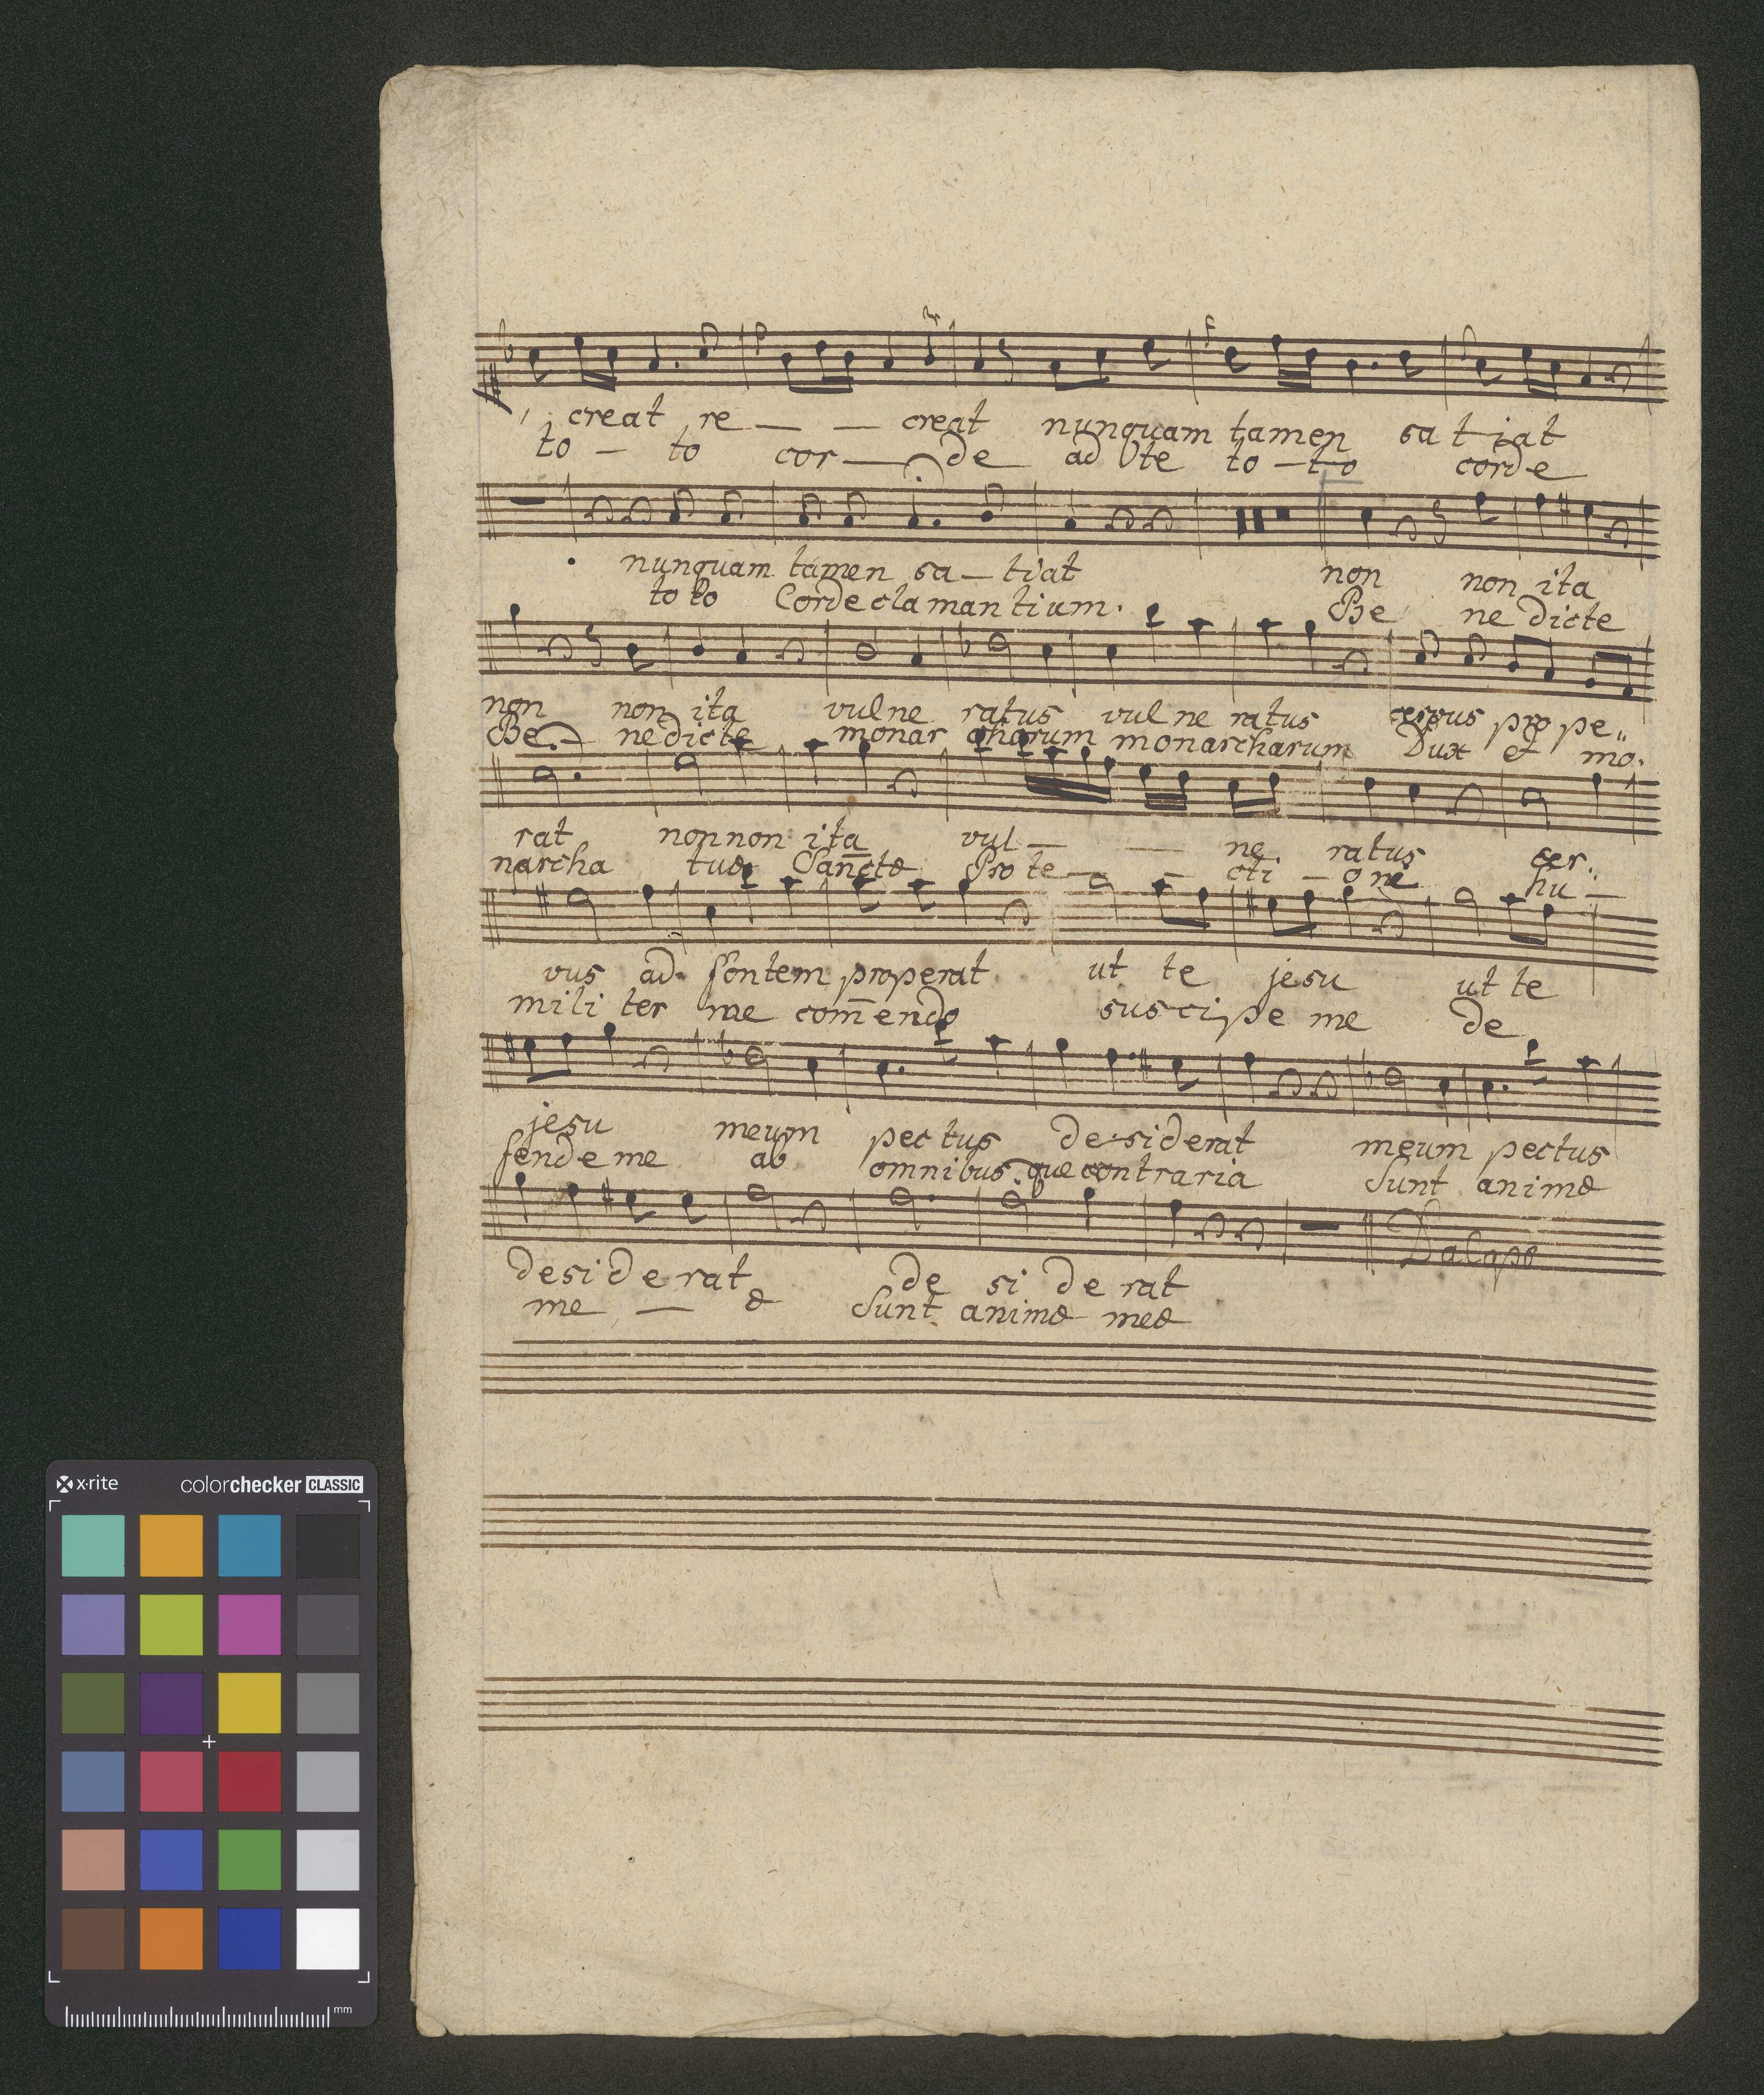 creat re — — creat nunquam tamen sa t iat
to — to cor — de ad te to — to corde
nunquam tamen sa — tiat non non ita
toto Corde clamantium. Be ne dicte
non non ita vulne ratus vul ne ratus cervus pro pe„
Be — ne dicte monar charum monarcharum Dux et mo.
rat non non ita vul — — ne ratus cer„
narcha tuæ Sancte Pro te — — cti — one hu —
vus ad fontem properat ut te jesu ut te
mili ter me com̄endo suscipe me de
jesu meum pectus desiderat meum pectus
fende me ab omnibus que contraria Sunt animæ
desiderat de si de rat
me — æ Sunt animæ meæ
Da Capo
x·rite colorchecker CLASSIC
mm